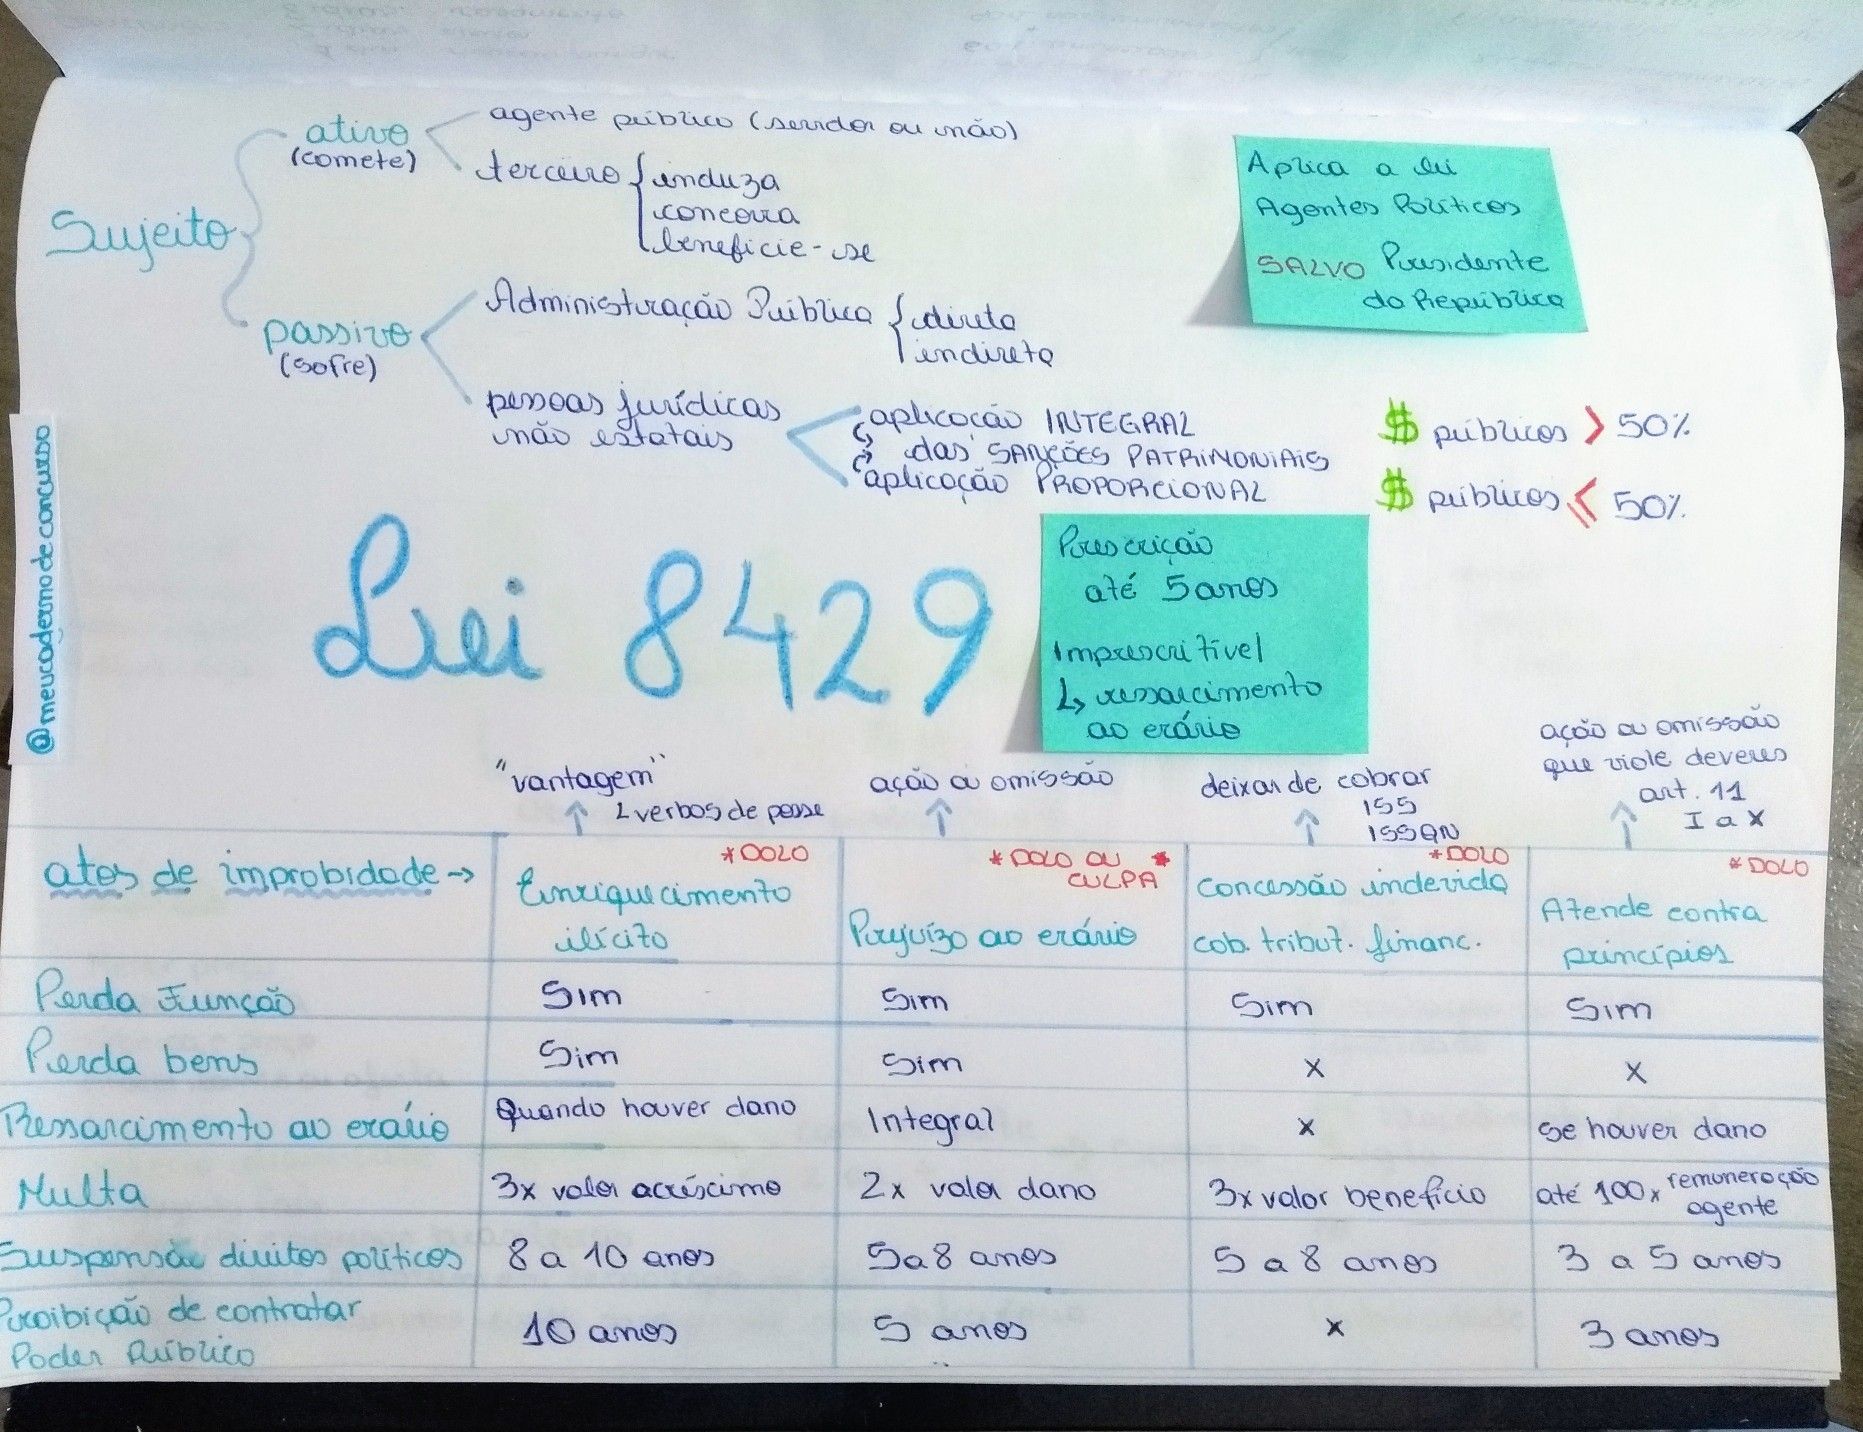 ativo
(comete)
agente público (servidor ou não)
terceiro
induza
concorra
beneficie-se
Sujeito
passivo
(sofre)
Administração Pública
direta
indireta
pessoas jurídicas
não estatais
aplicação INTEGRAL
das SANÇÕES PATRIMONIAIS
aplicação PROPORCIONAL
$ públicos > 50%
$ públicos ≤ 50%
Aplica a lei
Agentes Políticos
SALVO Presidente
da República
@meucadernodeconcurso
Lei 8429
Prescrição
até 5 anos
Imprescritível
↳ ressarcimento
ao erário
"vantagem"
↑ ∟verbos de posse
ação ou omissão
↑
deixar de cobrar
ISS
ISSQN
↑
ação ou omissão
que viole deveres
art. 11
I a X
↑
atos de improbidade →
*DOLO
Enriquecimento
ilícito
*DOLO OU *
CULPA
Prejuízo ao erário
*DOLO
Concessão indevida
cob. tribut. financ.
*DOLO
Atende contra
princípios
Perda Função Sim Sim Sim Sim
Perda bens Sim Sim x x
Ressarcimento ao erário Quando houver dano Integral x se houver dano
Multa 3x valor acréscimo 2x valor dano 3x valor benefício até 100x remuneração
agente
Suspensão direitos políticos 8 a 10 anos 5 a 8 anos 5 a 8 anos 3 a 5 anos
Proibição de contratar
Poder Público 10 anos 5 anos x 3 anos